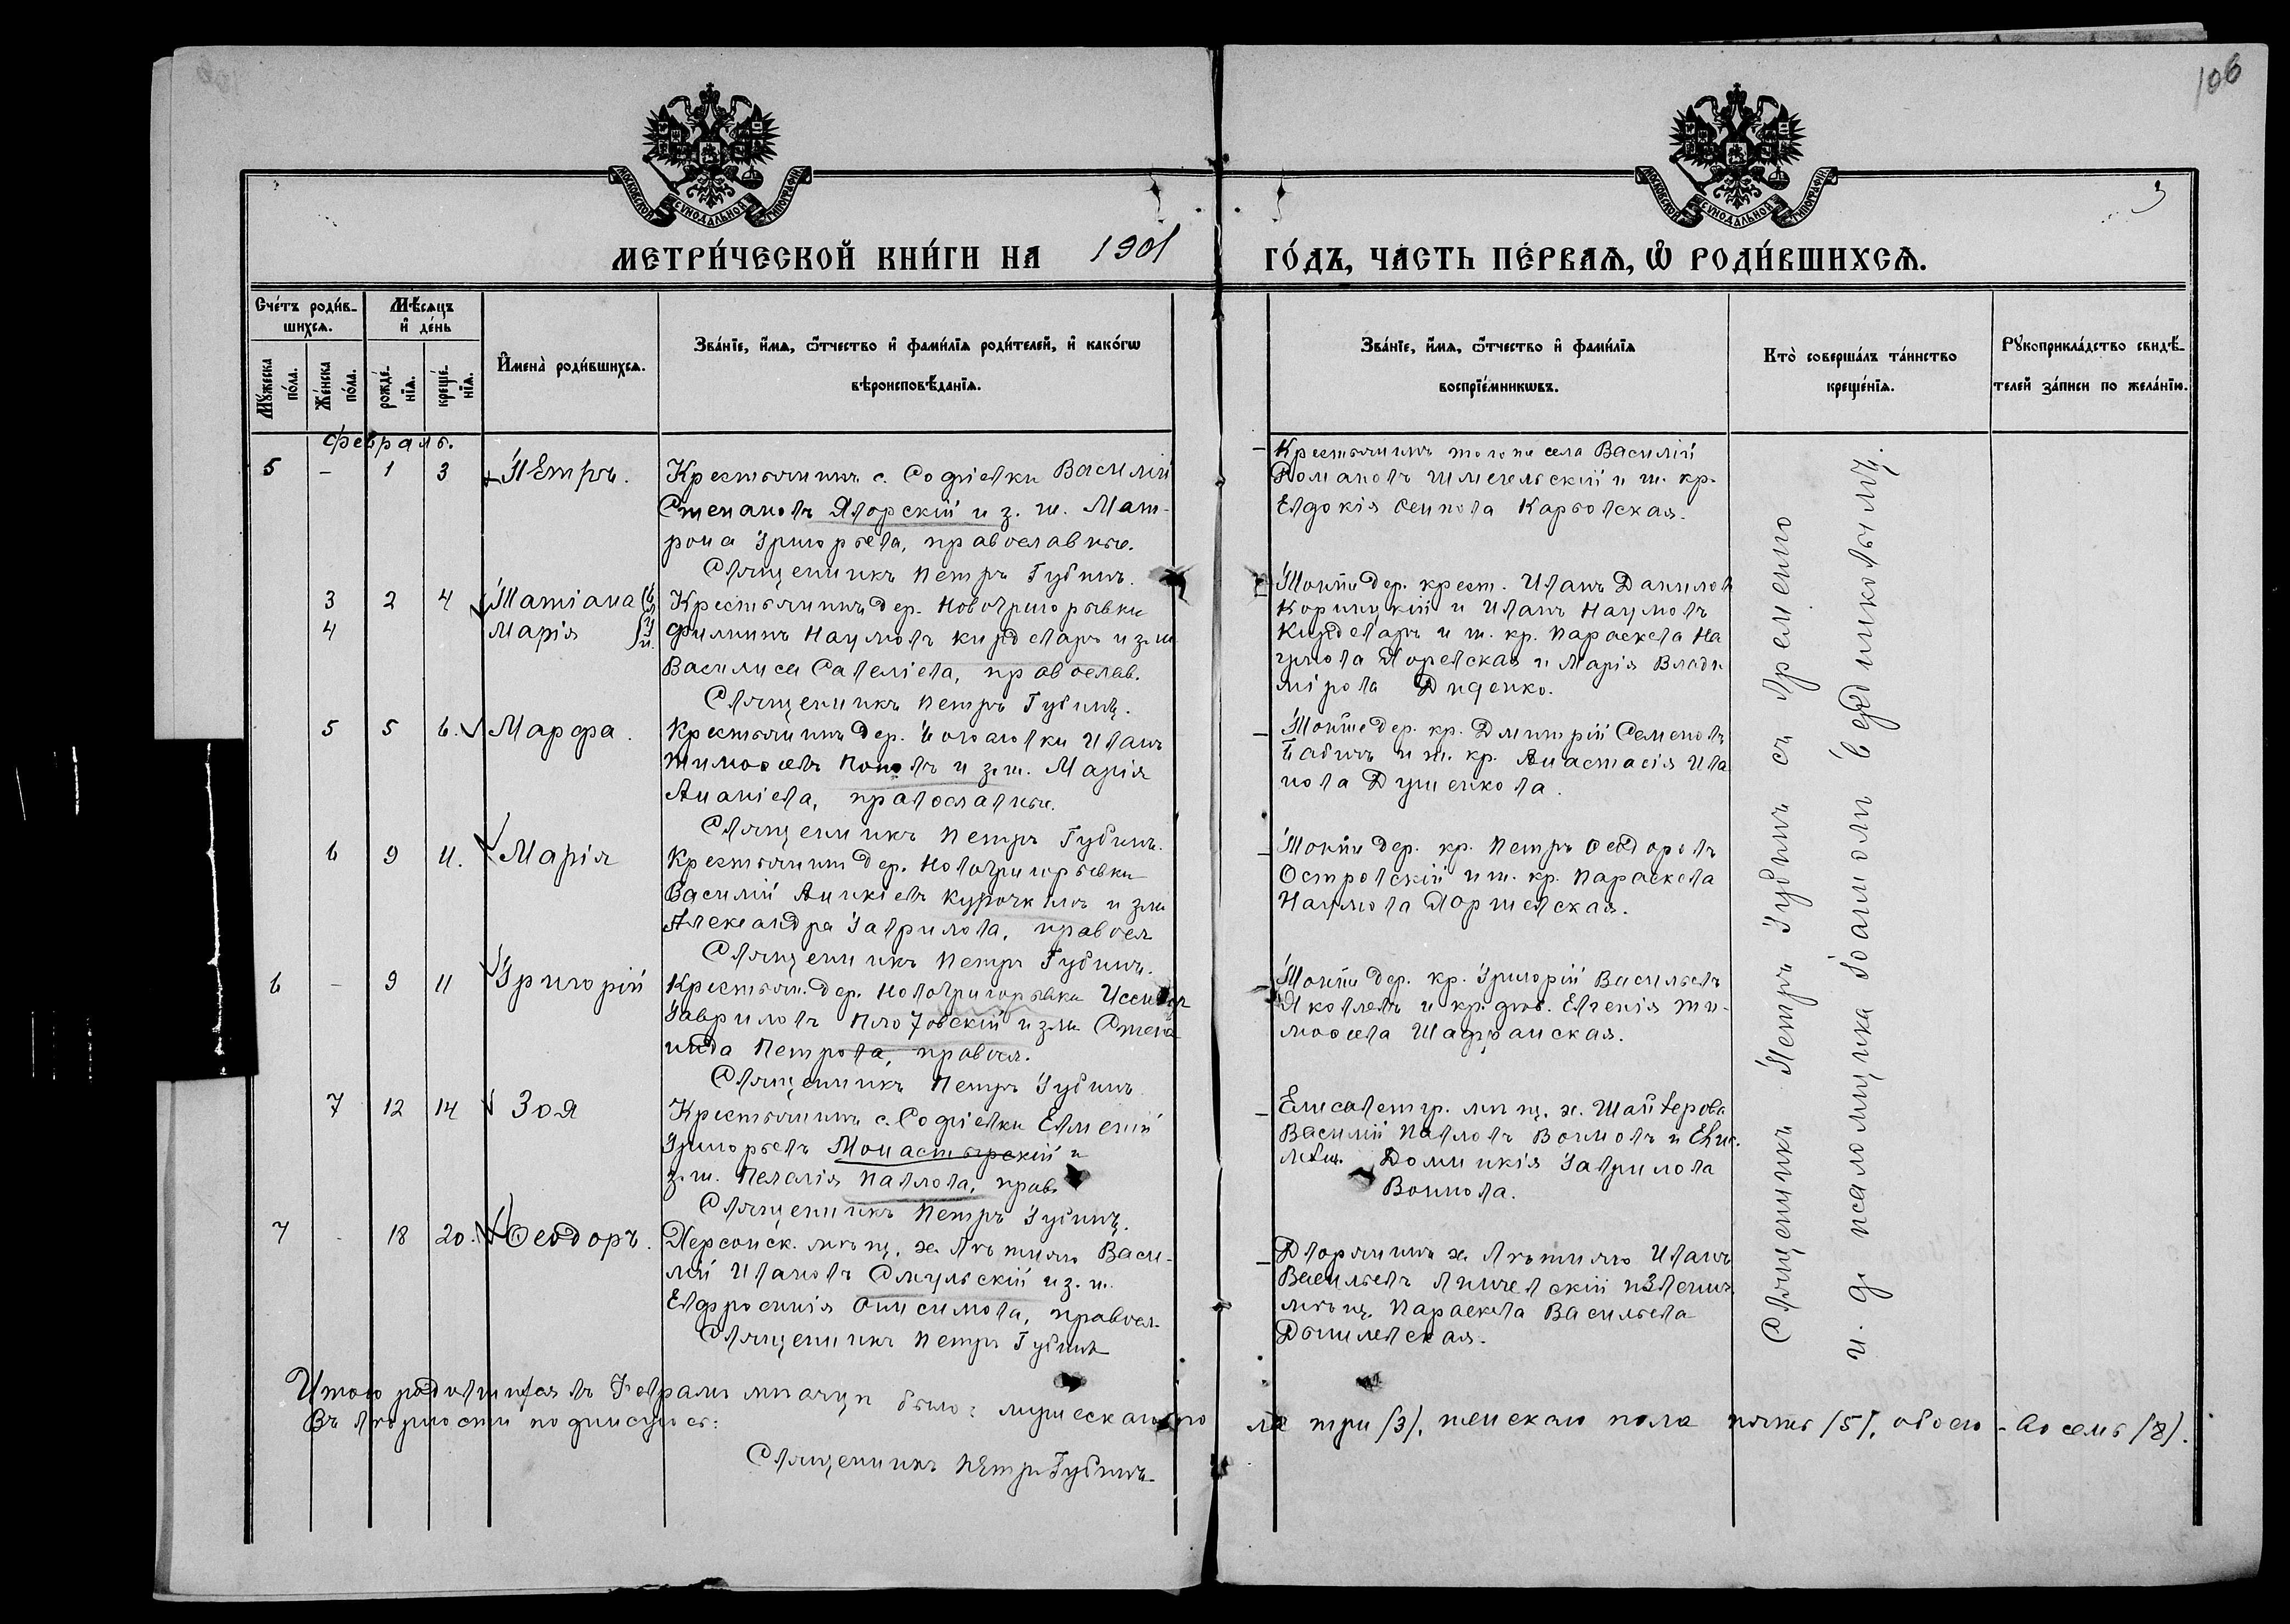 106
3
МОСКОВСКОЙ СѴНОДАЛЬНОЙ ТИПОГРАФІИ
МОСКОВСКОЙ СѴНОДАЛЬНОЙ ТИПОГРАФІИ
МЕТРИ́ЧЕСКОЙ КНИ́ГИ НА 1901 ГО́ДЪ, ЧА́СТЬ ПЕ́РВАѦ, Ѿ РОДИ́ВШИХСѦ.
Сче́тъ роди́в-
шихсѧ.
Мꙋ́жеска по́ла.
Же́нска по́ла.
Мѣ́сѧцъ
и҆ де́нь
рожде́-нїѧ.
креще́-нїѧ.
И҆мена̀ роди́вшихсѧ.
Зва́нїе, и҆́мѧ, ѻ҆́тчество и҆ фами́лїѧ роди́телей, и҆ како́гѡ
вѣроисповѣ́данїѧ.
Зва́нїе, и҆́мѧ, ѻ҆́тчество и҆ фами́лїѧ
воспрїе́мникѡвъ.
Кто̀ соверша́лъ та́инство
креще́нїѧ.
Рꙋкоприкла́дство свидѣ́-
телей за́писи по жела́нїю.
Февраль.
5 - 1 3 Петръ.
Крестьянинъ с. Софіевки Василій
Степановъ Яворскій и з. ж. Мат-
рона Григорьева, православные.
Священникъ Петръ Губинъ.
Крестьянинъ того же села Василій
Романовъ Шмегельскій и ж. кр.
Евдокія Осипова Карвовская.
3 2 4 Татіана
4 Марія
Крестьянинъ дер. Новогригорьевки
Филиппъ Наумовъ Кирдеваръ и з. ж.
Василиса Савеліева, православ.
Священникъ Петръ Губинъ.
Той же дер. крест. Иванъ Данилов
Корницкій и Иванъ Наумовъ
Кирдеваръ и ж. кр. Параскева На
умова Яоревская и Марія Влади
мірова Диденко.
5 5 6. Марфа.
Крестьянинъ дер. Иванъ
Тимофеевъ Поповъ и з. ж. Марія
Ананіева, православные.
Священникъ Петръ Губинъ.
Той же дер. кр. Димитрій Семеновъ
Бабичъ и ж. кр. Анастасія Ива
нова Душенкова.
6 9 11. Марія
Крестьянинъ дер. Новогригорьевки
Василій Аникіевъ Курочкинъ и з. ж.
Александра Гаврилова, правосл
Священникъ Петръ Губинъ.
Той же дер. кр. Петръ Ѳеодоровъ
Островскій и ж. кр. Параскева
Наумова Яоржевская.
6 - 9 11 Григорій
Крестьян. дер. Новогригорьевки
Гавриловъ и з. ж. Степа
нида Петрова, правосл.
Священникъ Петръ Губинъ
Той же дер. кр. Григорій Васильевъ
Яковлевъ и кр. дѣв. Евгенія Ти-
мофеева Шафранская.
7 12 14 Зоя
Крестьянинъ с. Софіевки Евменій
Григорьевъ Монастырскій и
з. ж. Пелагія Павлова, прав.
Священникъ Петръ Губинъ.
Елисаветгр. мѣщ. х. Шайтерова
Василій Павловъ Воиновъ и Елис.
мѣщ. Домникія Гаврилова
Воинова.
7 - 18 20. Ѳеодоръ.
Херсонск. мѣщ. х. Васи-
лій Ивановъ Смульскій и з. ж.
Евфросинія Онисимова, правосл.
Священникъ Петръ Губинъ
Дворянинъ х. Иванъ
Васильевъ и
мѣщ. Параскева Васильева
Данилевская.
Священникъ Петръ Губинъ съ временно
и. д. псаломщика Іоанномъ Ведниковымъ.
Итого родившихся въ Февралѣ мѣсяцѣ было: мужескаго по ла три (3), женскаго пола пять (5), обоего - восемь (8).
Въ вѣрности подписуюсь:
Священникъ Петръ Губинъ